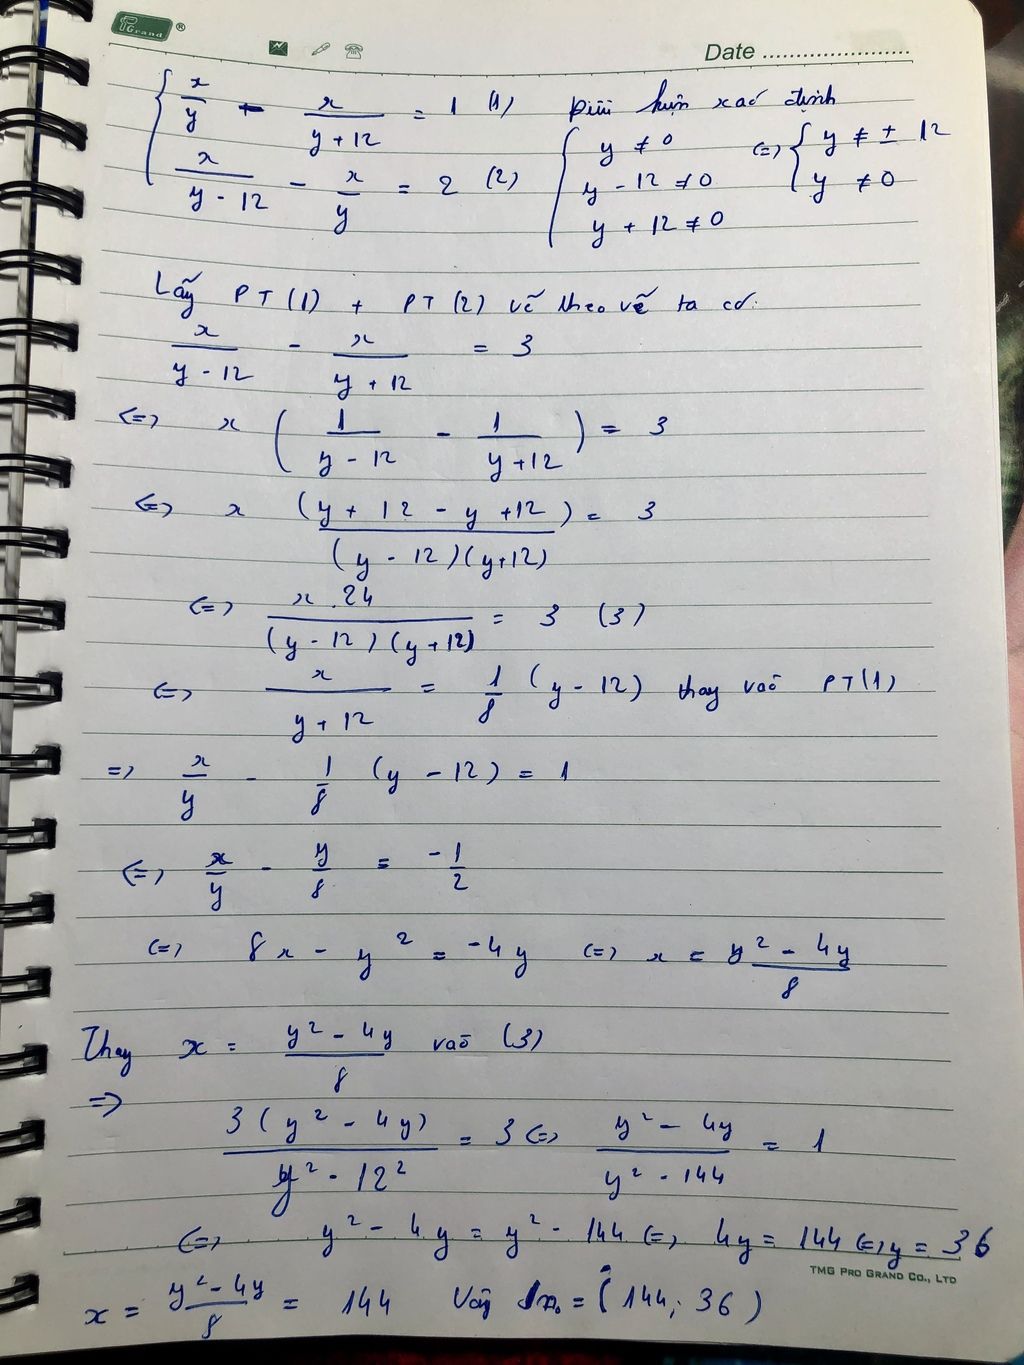 PGrand ®
Date ........................
{ x/y - x/(y + 12) = 1 (1) Điều kiện xác định
{ x/(y - 12) - x/y = 2 (2) { y ≠ 0 <=> { y ≠ ± 12
y - 12 ≠ 0 y ≠ 0
y + 12 ≠ 0
Lấy PT(1) + PT(2) vế theo vế ta có:
x/(y - 12) - x/(y + 12) = 3
<=> x ( 1/(y - 12) - 1/(y + 12) ) = 3
<=> x (y + 12 - y + 12)/((y - 12)(y + 12)) = 3
<=> x.24/((y - 12)(y + 12)) = 3 (3)
<=> x/(y + 12) = 1/8 (y - 12) thay vào PT(1)
=> x/y - 1/8 (y - 12) = 1
<=> x/y - y/8 = -1/2
<=> 8x - y² = -4y <=> x = (y² - 4y)/8
Thay x = (y² - 4y)/8 vào (3)
=> 3(y² - 4y)/(y² - 12²) = 3 <=> (y² - 4y)/(y² - 144) = 1
<=> y² - 4y = y² - 144 <=> 4y = 144 <=> y = 36
TMG PRO GRAND CO., LTD
x = (y² - 4y)/8 = 144 Vậy = (144; 36)